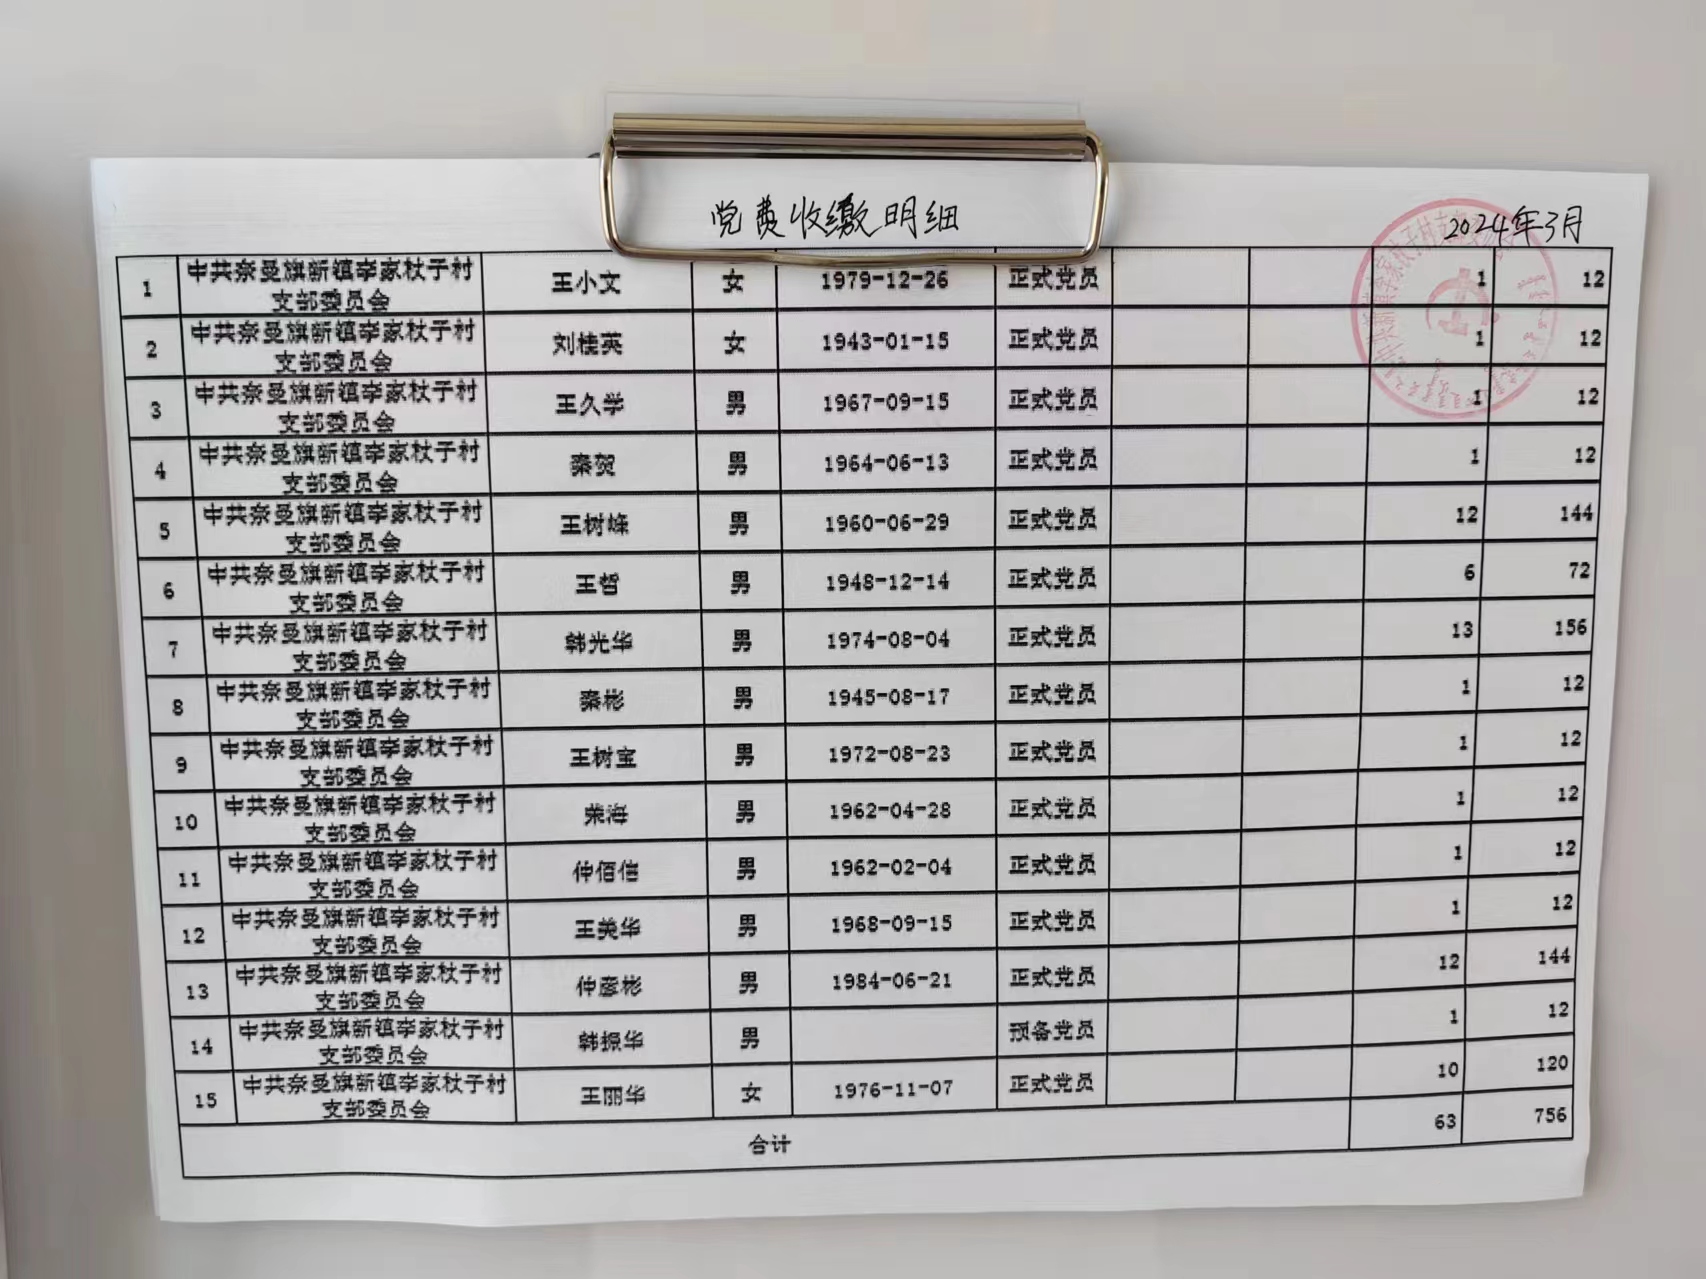 党费收缴明细
2024年3月
1 中共奈曼旗新镇李家杖子村支部委员会 王小文 女 1979-12-26 正式党员 1 12
2 中共奈曼旗新镇李家杖子村支部委员会 刘桂英 女 1943-01-15 正式党员 1 12
3 中共奈曼旗新镇李家杖子村支部委员会 王久学 男 1967-09-15 正式党员 1 12
4 中共奈曼旗新镇李家杖子村支部委员会 秦贺 男 1964-06-13 正式党员 1 12
5 中共奈曼旗新镇李家杖子村支部委员会 王树峰 男 1960-06-29 正式党员 12 144
6 中共奈曼旗新镇李家杖子村支部委员会 王哲 男 1948-12-14 正式党员 6 72
7 中共奈曼旗新镇李家杖子村支部委员会 韩光华 男 1974-08-04 正式党员 13 156
8 中共奈曼旗新镇李家杖子村支部委员会 秦彬 男 1945-08-17 正式党员 1 12
9 中共奈曼旗新镇李家杖子村支部委员会 王树宝 男 1972-08-23 正式党员 1 12
10 中共奈曼旗新镇李家杖子村支部委员会 荣海 男 1962-04-28 正式党员 1 12
11 中共奈曼旗新镇李家杖子村支部委员会 仲佰信 男 1962-02-04 正式党员 1 12
12 中共奈曼旗新镇李家杖子村支部委员会 王美华 男 1968-09-15 正式党员 1 12
13 中共奈曼旗新镇李家杖子村支部委员会 仲彦彬 男 1984-06-21 正式党员 12 144
14 中共奈曼旗新镇李家杖子村支部委员会 韩振华 男 预备党员 1 12
15 中共奈曼旗新镇李家杖子村支部委员会 王丽华 女 1976-11-07 正式党员 10 120
合计 63 756